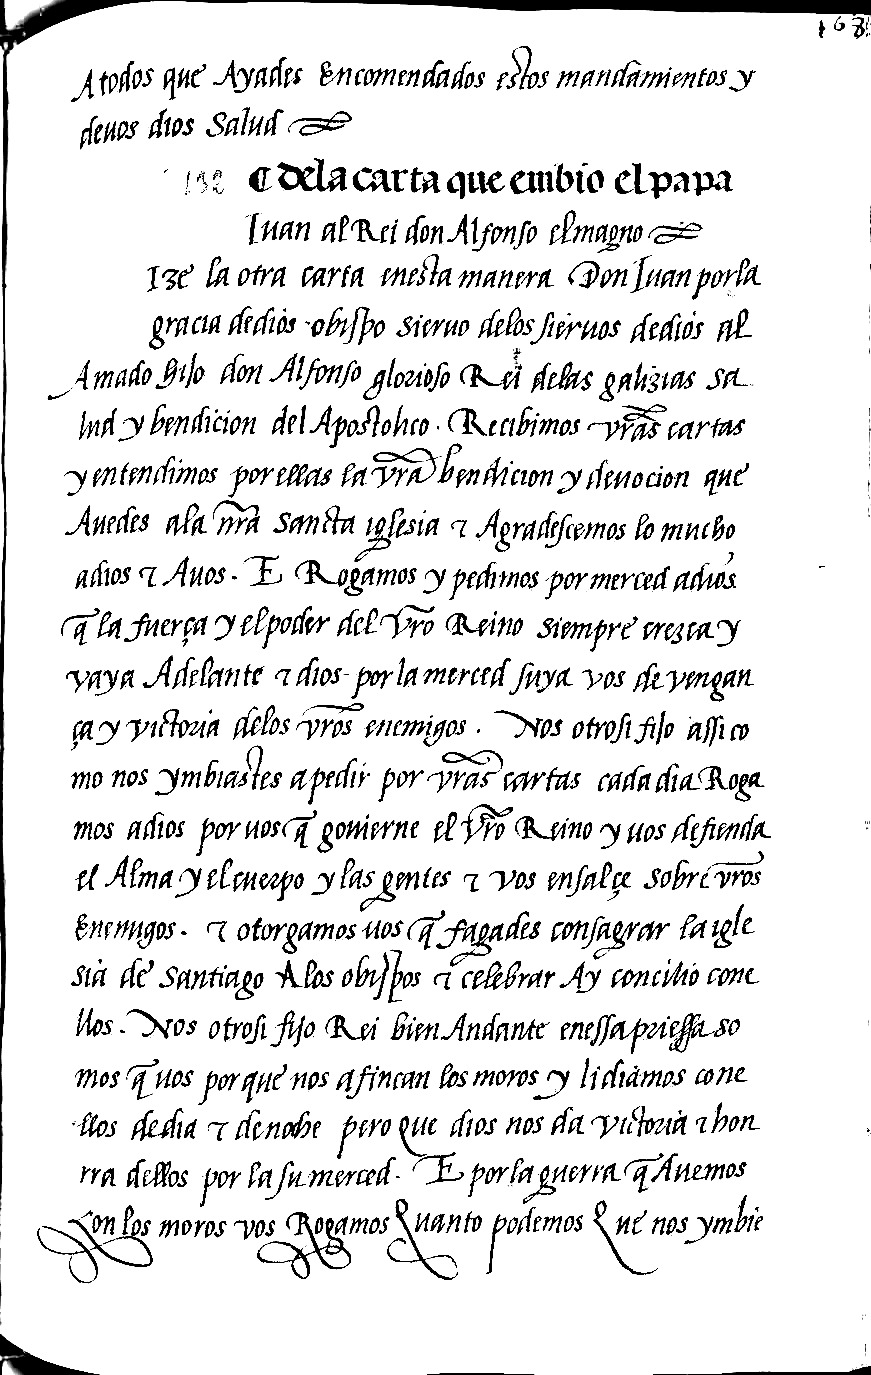 168
A todos que Ayades Encomendados estos mandamientos y
deuos dios Salud
132 ¶ dela carta que embio el papa
Iuan al Rei don Alfonso el magno
Ize la otra carta enesta manera Don Iuan por la
gracia de dios obispo sieruo delos sieruos de dios al
Amado hijo don Alfonso glorioso Rei delas galizias sa
lud y bendicion del Apostolico. Recibimos vr̃as cartas
y entendimos por ellas la vr̃a bendicion y deuocion que
Auedes ala nr̃a sancta iglesia τ Agradescemos lo mucho
adios τ Auos. E Rogamos y pedimos por merced adios
q̃ la fuerça y el poder del Vr̃o Reino siempre crezca y
vaya Adelante τ dios por la merced suya vos de vengan
ça y victoria delos vr̃os enemigos. Nos otrosi fijo assi co
mo nos ymbiastes a pedir por vr̃as cartas cada dia Roga
mos adios por uos q̃ govierne el Vr̃o Reino y uos defienda
el Alma y el cuerpo y las gentes τ vos ensalçe sobre vr̃os
Enemigos. τ otorgamos uos q̃ fagades consagrar la igle
sia de santiago A los obispos τ celebrar Ay concilio cone
llos. Nos otrosi fijo Rei bien Andante enessa priessa so
mos q̃ uos por que nos afincan los moros y lidiamos cone
llos de dia τ de noche pero que dios nos da victoria τ hon
rra dellos por la su merced. E por la guerra q̃ Auemos
Con los moros vos Rogamos Quanto podemos Que nos ymbie